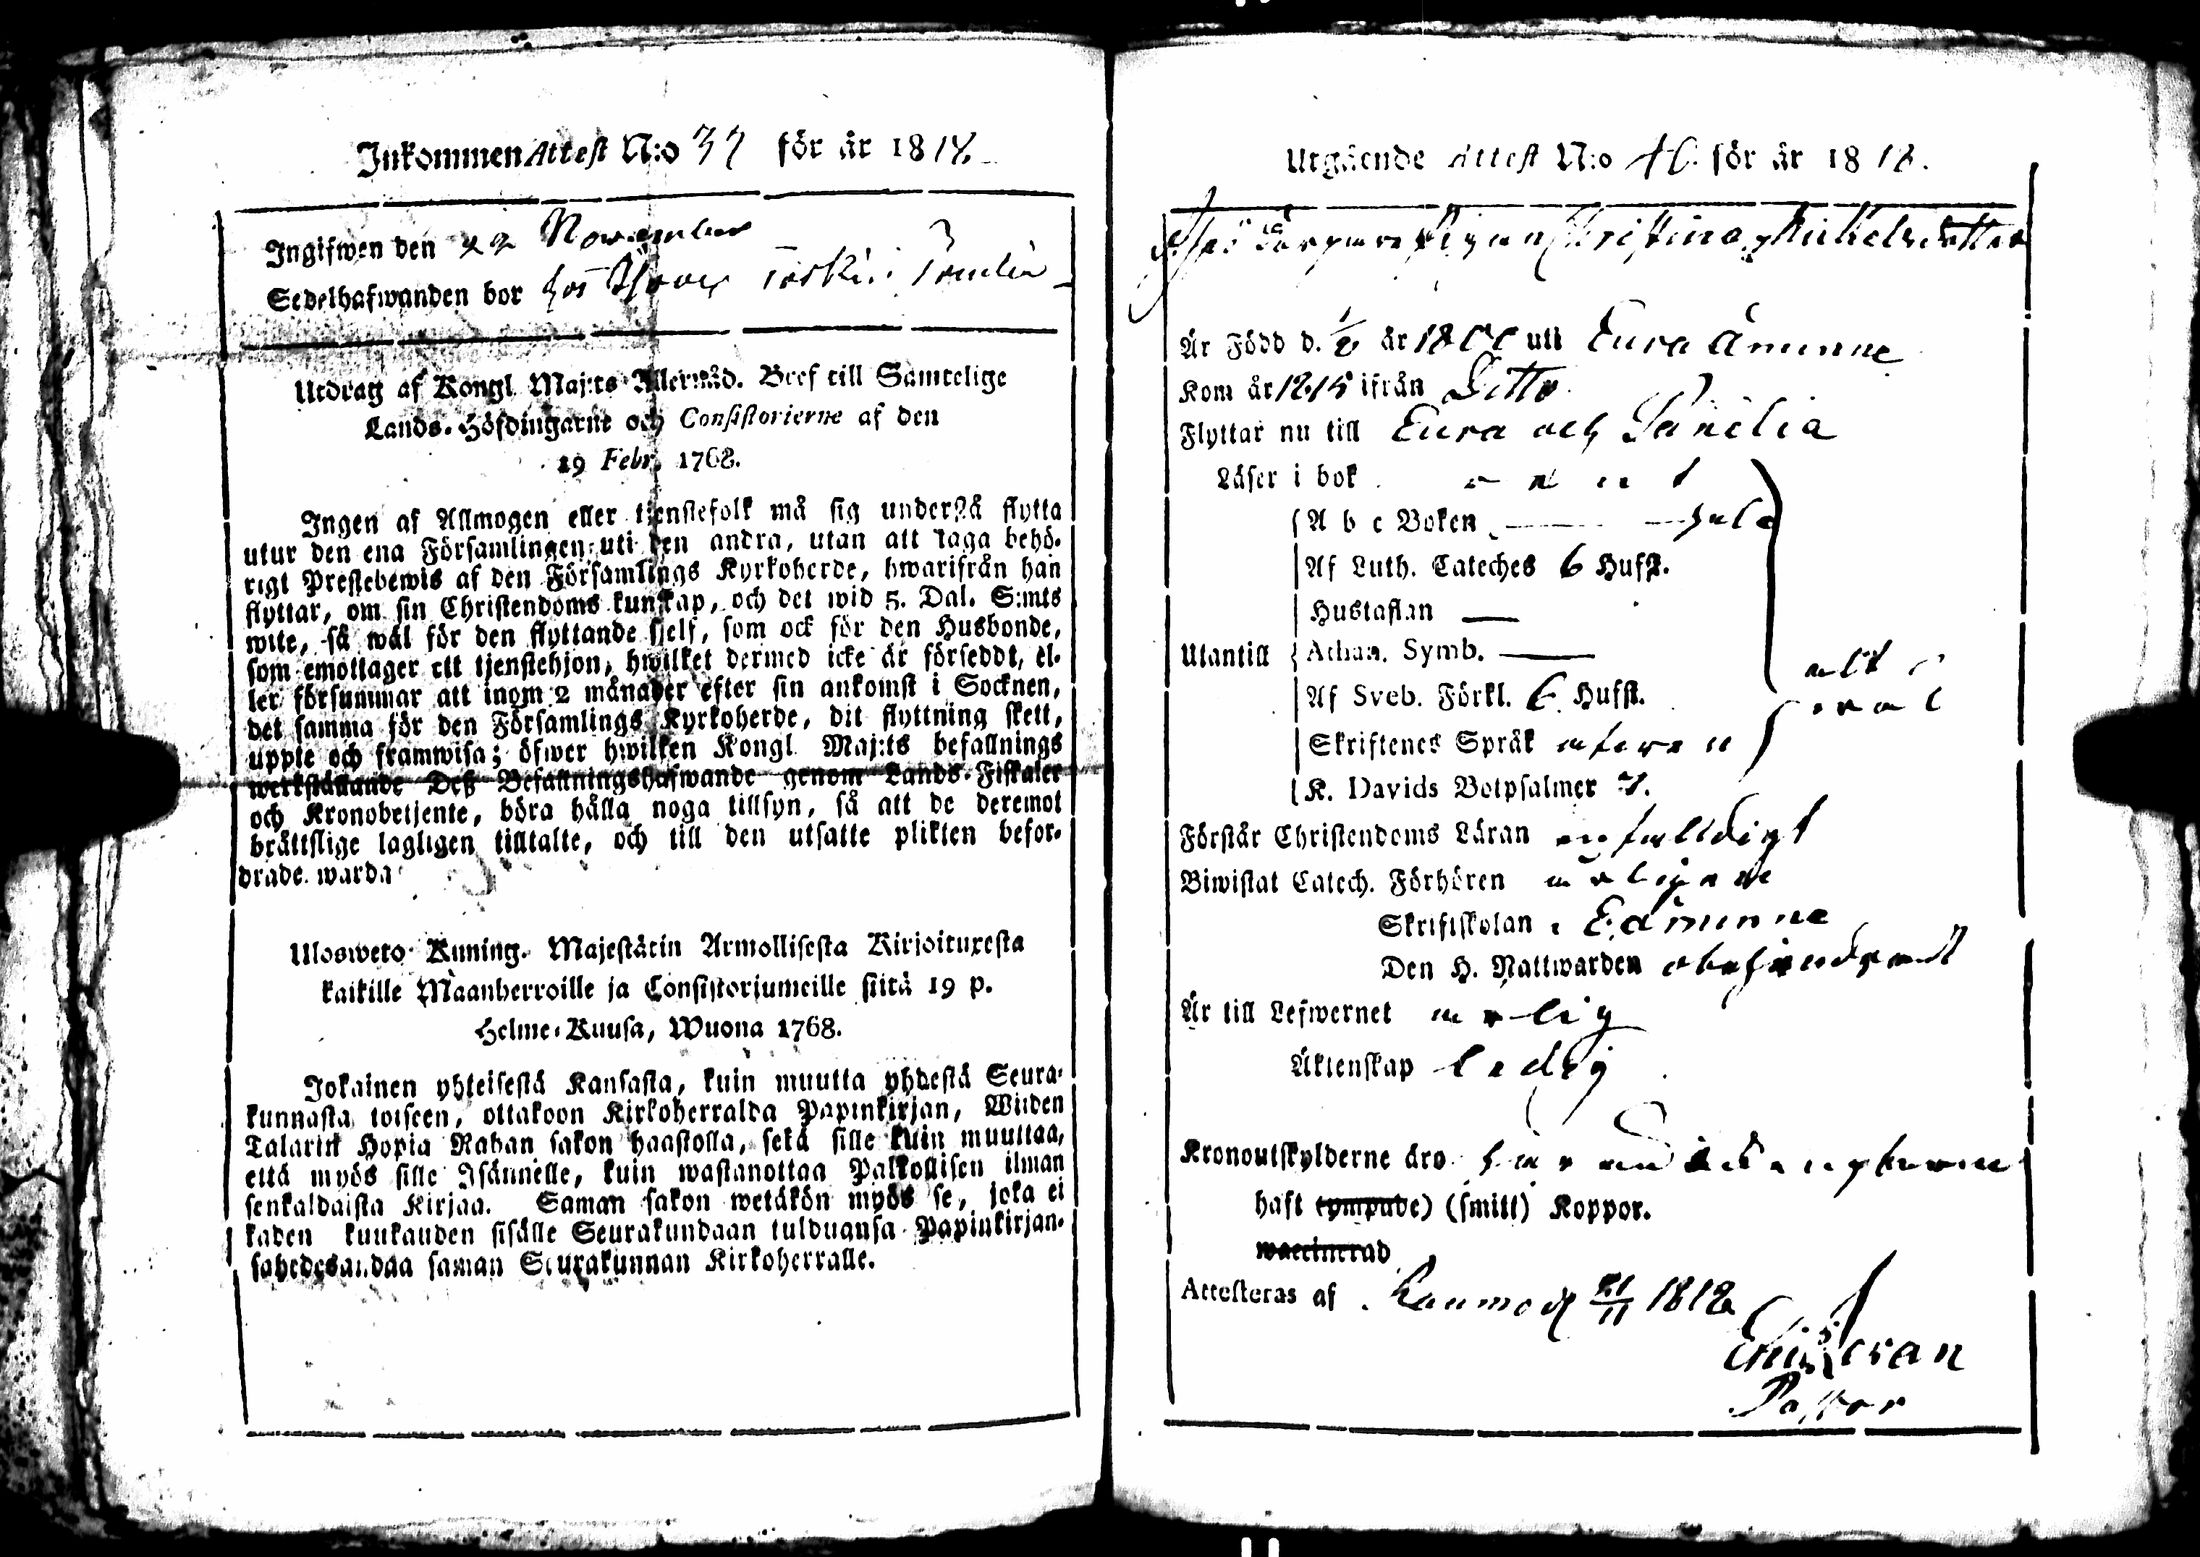 Inkommen Attest N:o 37 för år 1818.
Ingifwen den 22 November
Sedelhafwanden bor hos
Utdrag af Kongl. Maj:ts Allernåd. Bref till Samtelige
Lands-Höfdingarne och Consistorierne af den
19 Febr. 1768.
Ingen af Allmogen eller tjenstefolk må sig understå flytta
utur den ena Församlingen uti den andra, utan att taga behö-
rigt Prestebewis af den Församlings Kyrkoherde, hwarifrån han
flyttar, om sin Christendoms kunskap, och det wid 5. Dal. S:mts
wite, så wäl för den flyttande sjelf, som ock för den Husbonde,
som emottager ett tjenstehjon, hwilket dermed icke är försedt, el-
ler försummar att inom 2 månader efter sin ankomst i Socknen,
det samma för den Församlings Kyrkoherde, dit flyttning skett,
uppte och framwisa; öfwer hwilken Kongl. Maj:ts befallnings
werkställande Deß Befallningshafwande genom Lands-Fiskaler
och Kronobetjente, böra hålla noga tillsyn, så att de deremot
brättslige lagligen tilltalte, och till den utsatte plikten befor-
drade warda
Ulosweto Kuning. Majestätin Armollisesta Kirjoituxesta
kaikille Maanherroille ja Consistoriumeille siitä 19 p.
Helme-Kuusa, Wuona 1768.
Jokainen yhteisestä Kansasta, kuin muutta yhdestä Seura-
kunnasta toiseen, ottakoon Kirkoherralda Papinkirjan, Wiiden
Talarin Hopia Rahan sakon haastolla, sekä sille kuin muuttaa,
että myös sille Isännelle, kuin wastanottaa Palkollisen ilman
senkaldaista Kirjaa. Saman sakon wetäkön myös se, joka ei
kaden kuukauden sisälle Seurakundaan tulduansa Papinkirjan-
sa saman Seurakunnan Kirkoherralle.
Utgående Attest N:o 40. för år 1818.
Pigan Christina Michelsdotter
Är Född d. år 1800 uti Eura åminne
Kom år 1815 ifrån Ditto
Flyttar nu till Eura och Panelia
Läser i bok
A b c Boken
Af Luth. Cateches 6 Hufst.
Hustaflan
Utantill Athan. Symb.
Af Sveb. Förkl. 6 Hufst.
allt
Skriftenes Språk
K. Davids Botpsalmer 7.
Förstår Christendoms Läran enfalldigt
Biwistat Catech. Förhören
Skriftskolan i Eåminne
Den H. Nattwarden obehindradt
Är till Lefwernet
Äktenskap ledig
Kronoutskylderne äro
haft (ympade) (smitt) Koppor.
waccinerad
Attesteras af Raumo d 21/11 1818
Pastor